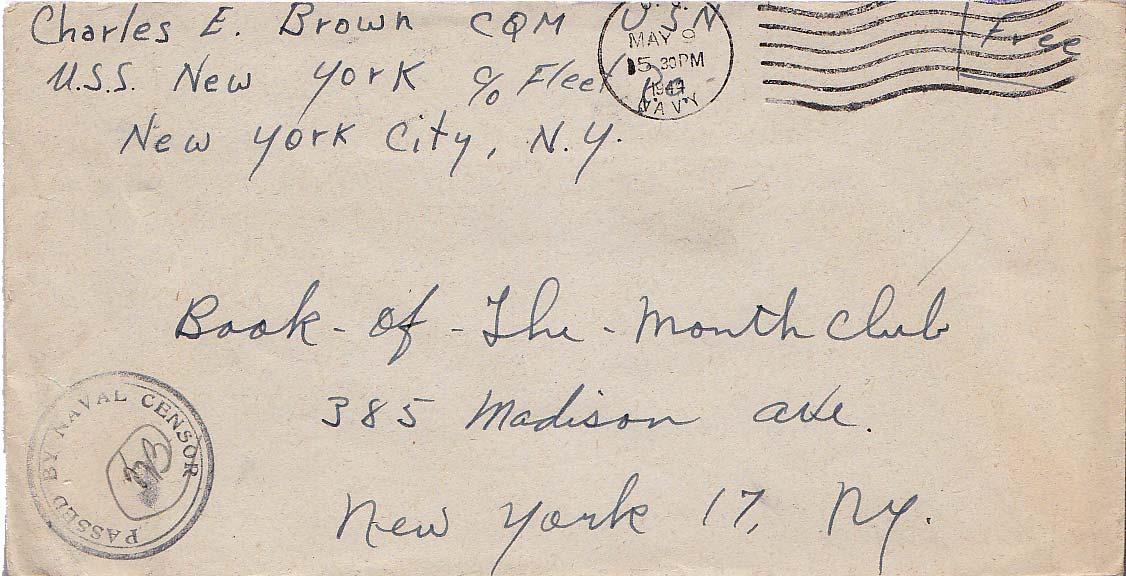 Charles E. Brown CQM U.S.N
U.S.S. New York c/o Fleet P.O.
New York City, N.Y.
MAY 9
5 30 PM
1944
NAVY
Free
Book-of-The-Month Club
385 Madison ave.
New York 17, Ny.
PASSED BY NAVAL CENSOR